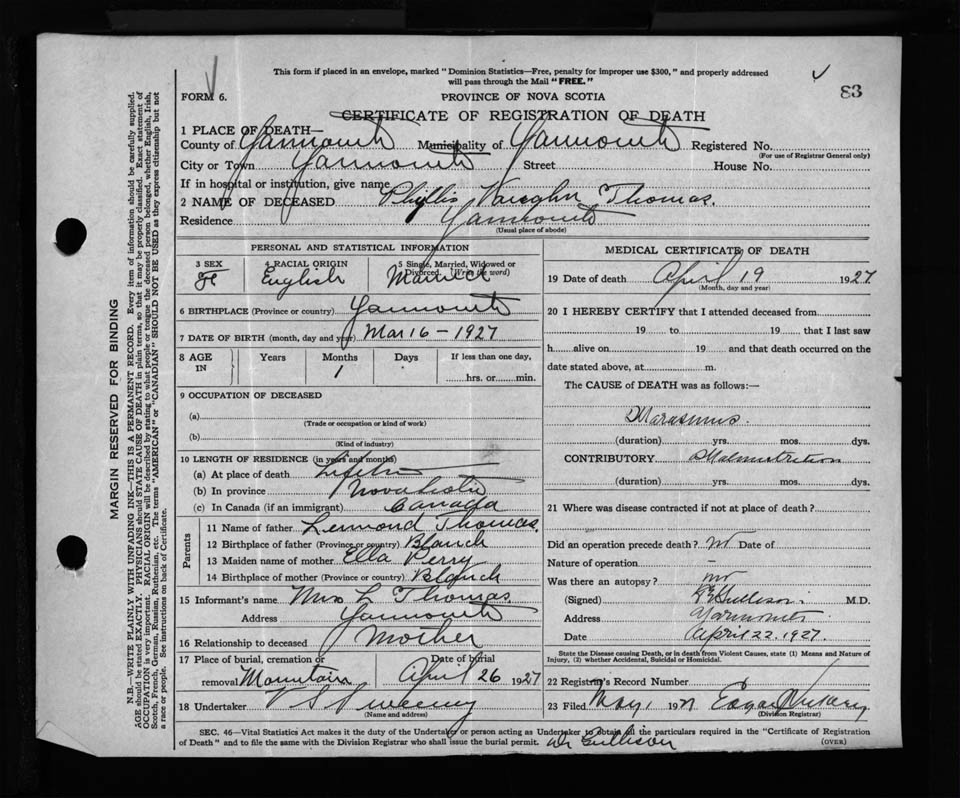 This form if placed in an envelope, marked "Dominion Statistics—Free, penalty for improper use $300," and properly addressed
will pass through the Mail "FREE."
83
FORM 6.
PROVINCE OF NOVA SCOTIA
CERTIFICATE OF REGISTRATION OF DEATH
1 PLACE OF DEATH—
County of Yarmouth Municipality of Yarmouth Registered No.
(For use of Registrar General only)
City or Town Yarmouth Street House No.
If in hospital or institution, give name
2 NAME OF DECEASED Phyllis Vaughn Thomas.
Residence Yarmouth
(Usual place of abode)
PERSONAL AND STATISTICAL INFORMATION
3 SEX 4 RACIAL ORIGIN 5 Single, Married, Widowed or
Divorced. (Write the word)
F English
6 BIRTHPLACE (Province or country) Yarmouth
7 DATE OF BIRTH (month, day and year) Mar 16 - 1927
8 AGE IN Years Months Days If less than one day,
1 hrs. or min.
9 OCCUPATION OF DECEASED
(a)
(Trade or occupation or kind of work)
(b)
(Kind of industry)
10 LENGTH OF RESIDENCE (in years and months)
(a) At place of death
(b) In province Nova Scotia
(c) In Canada (if an immigrant) Canada
Parents
11 Name of father Thomas.
12 Birthplace of father (Province or country) Blanch
13 Maiden name of mother Ella Perry
14 Birthplace of mother (Province or country) Blanch
15 Informant's name Mrs L Thomas
Address Yarmouth
16 Relationship to deceased Mother
17 Place of burial, cremation or Date of burial
removal Mountain April 26 1927
18 Undertaker V S Sweeny
(Name and address)
MEDICAL CERTIFICATE OF DEATH
19 Date of death April 19 1927
(Month, day and year)
20 I HEREBY CERTIFY that I attended deceased from
19 to 19 that I last saw
h alive on 19 and that death occurred on the
date stated above, at m.
The CAUSE of DEATH was as follows:—
Marasmus.
(duration) yrs. mos. dys.
CONTRIBUTORY Malnutrition
(duration) yrs. mos. dys.
21 Where was disease contracted if not at place of death?
Did an operation precede death? no Date of
Nature of operation —
Was there an autopsy? no
(Signed) M.D.
Address Yarmouth
Date April 22. 1927
State the Disease causing Death, or in death from Violent Causes, state (1) Means and Nature of
Injury, (2) whether Accidental, Suicidal or Homicidal.
22 Registrar's Record Number
23 Filed May 1 1927 Edgar
(Division Registrar)
SEC. 46—Vital Statistics Act makes it the duty of the Undertaker or person acting as Undertaker to obtain all the particulars required in the "Certificate of Registration
of Death" and to file the same with the Division Registrar who shall issue the burial permit. Dr Gullison (OVER)
MARGIN RESERVED FOR BINDING
N.B.—WRITE PLAINLY WITH UNFADING INK—THIS IS A PERMANENT RECORD. Every item of information should be carefully supplied.
AGE should be stated EXACTLY. PHYSICIANS should STATE CAUSE OF DEATH in plain terms, so that it may be properly classified. Exact statement of
OCCUPATION is very important. RACIAL ORIGIN will be described by stating to what people or tongue the deceased person belonged, whether English, Irish,
Scotch, French, German, Russian, Ruthenian, etc. The terms "AMERICAN" or "CANADIAN" SHOULD NOT BE USED as they express citizenship but not
a race or people. See instructions on back of Certificate.